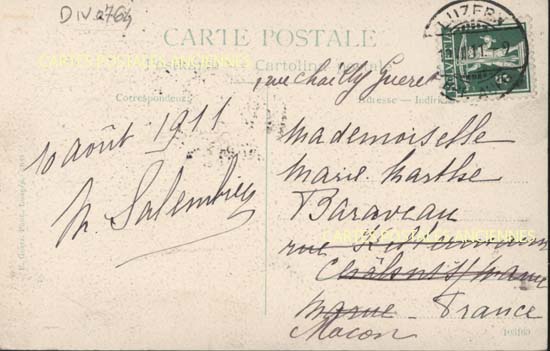 DIV 2764
LUZERN
CARTE POSTALE
CARTES POSTALES ANCIENNES
Cartolina postale
rue Chailly Gueret
Correspondenz
Adresse
10 août 1911
Mademoiselle
M. Salembier
Marie Marthe
Baraveau
CARTES POSTALES ANCIENNES
rue
Châlons s/ marne
Marne France
Macon